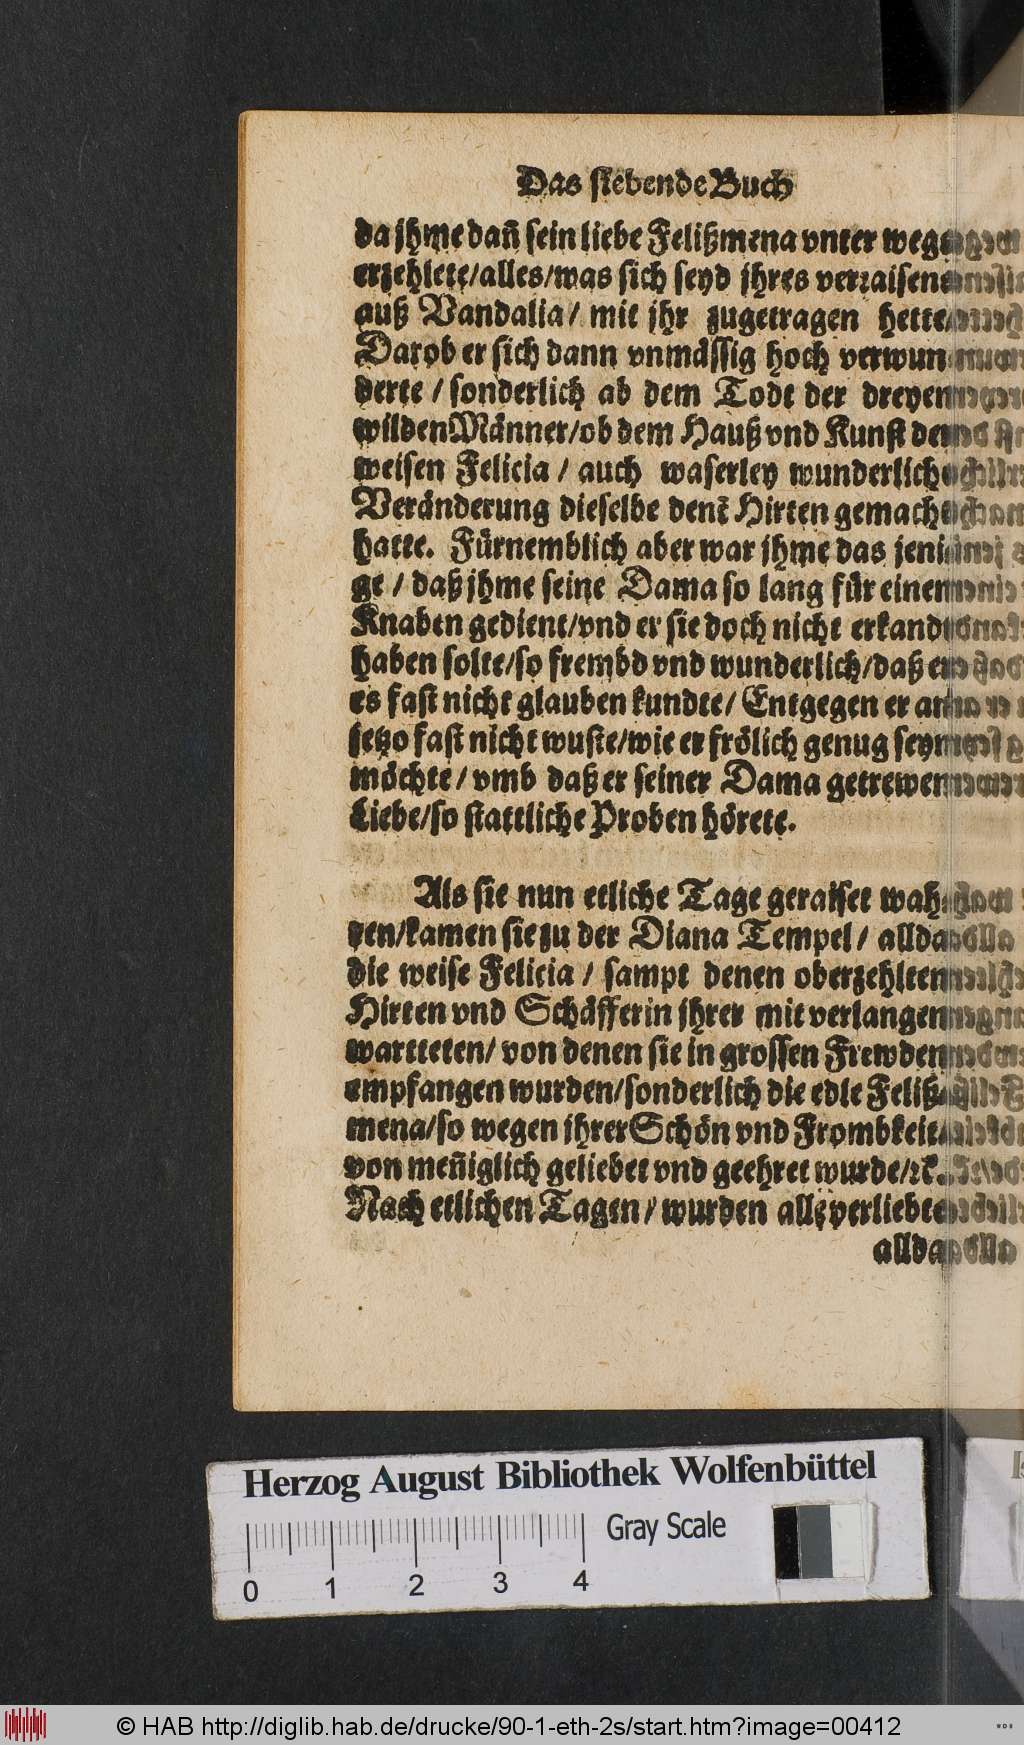 Das siebende Buch
da jhme dañ sein liebe Felißmena vnter wegen
erzehlete/alles/was sich seyd jhres verraisens
auß Vandalia/ mit jhr zugetragen hette/
Darob er sich dann vnmässig hoch verwun-
derte / sonderlich ab dem Todt der dreyen
wilden Männer/ob dem Hauß vnd Kunst der
weisen Felicia / auch waserley wunderliche
Veränderung dieselbe denē Hirten gemacht
hatte. Fürnemblich aber war jhme das jeni-
ge / daß jhme seine Dama so lang für einem
Knaben gedient/vnd er sie doch nicht erkandt
haben solte/so frembd vnd wunderlich/daß er
es fast nicht glauben kundte/ Entgegen er an
jetzo fast nicht wuste/wie er frölich genug seyn
möchte/ vmb daß er seiner Dama getrewen
Liebe/so stattliche Proben hörete.
Als sie nun etliche Tage geraiset wah-
ren/kamen sie zu der Diana Tempel/ allda
die weise Felicia/ sampt denen oberzehlten
Hirten vnd Schäfferin jhrer mit verlangen
wartteten/ von denen sie in grossen Frewden
empfangen wurden/sonderlich die edle Feliß-
mena/so wegen jhrer Schön vnd Frombkeit/
von meñiglich geliebet vnd geehret wurde/ꝛc.
Nach etlichen Tagen/ wurden alle verliebte
allda
Herzog August Bibliothek Wolfenbüttel
0 1 2 3 4 Gray Scale
© HAB http://diglib.hab.de/drucke/90-1-eth-2s/start.htm?image=00412